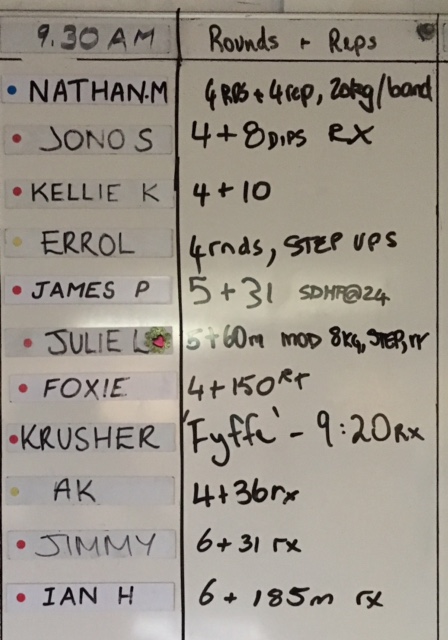 9.30 AM Rounds + Reps
NATHAN.M 4 RDS + 4 rep, 20kg/band
JONO S 4 + 8 DIPS RX
KELLIE K 4 + 10
ERROL 4 rnds, STEP UPS
JAMES P 5 + 31 SDHP@24
JULIE L 5 + 60m MOD 8KG, STEP, rr
FOXIE 4 + 150 RX
KRUSHER 'Fyffe' - 9:20 RX
AK 4 + 36 rx
JIMMY 6 + 31 rx
IAN H 6 + 185m rx